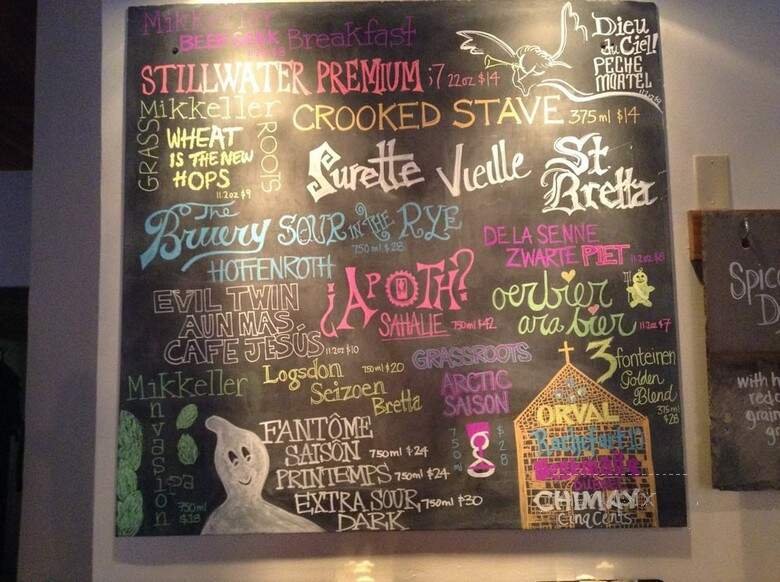 Mikkeller
BEER GEEK Breakfast
Dieu
du Ciel!
PECHE
MORTEL
STILLWATER PREMIUM ;7 22oz $14
Mikkeller
GRASS
ROOTS
WHEAT
IS THE NEW
HOPS
11.2oz $9
CROOKED STAVE 375ml $14
Surette Vieille
St
Bretta
The
Bruery SOUR IN THE RYE
750ml $28
HOTTENROTH
DE LA SENNE
ZWARTE PIET 11.2oz $8
EVIL TWIN
AUN MAS
CAFE JESÚS 11.2oz $10
¿APOTH?
SAHALIE 750ml $42
oerbier
ara bier 11.2oz $7
Mikkeller
Invasion
IPA
750ml
$18
Logsdon 750ml $20
Seizoen
Bretta
GRASSROOTS
ARCTIC
SAISON
750ml
$28
3 fonteinen
Golden
Blend
375ml
$28
FANTÔME
SAISON 750ml $24
PRINTEMPS 750ml $24
EXTRA SOUR, 750ml $30
DARK
ORVAL
Rochefort 10
CHIMAY
Cinq Cents
Spic
D
with h
red c
grain